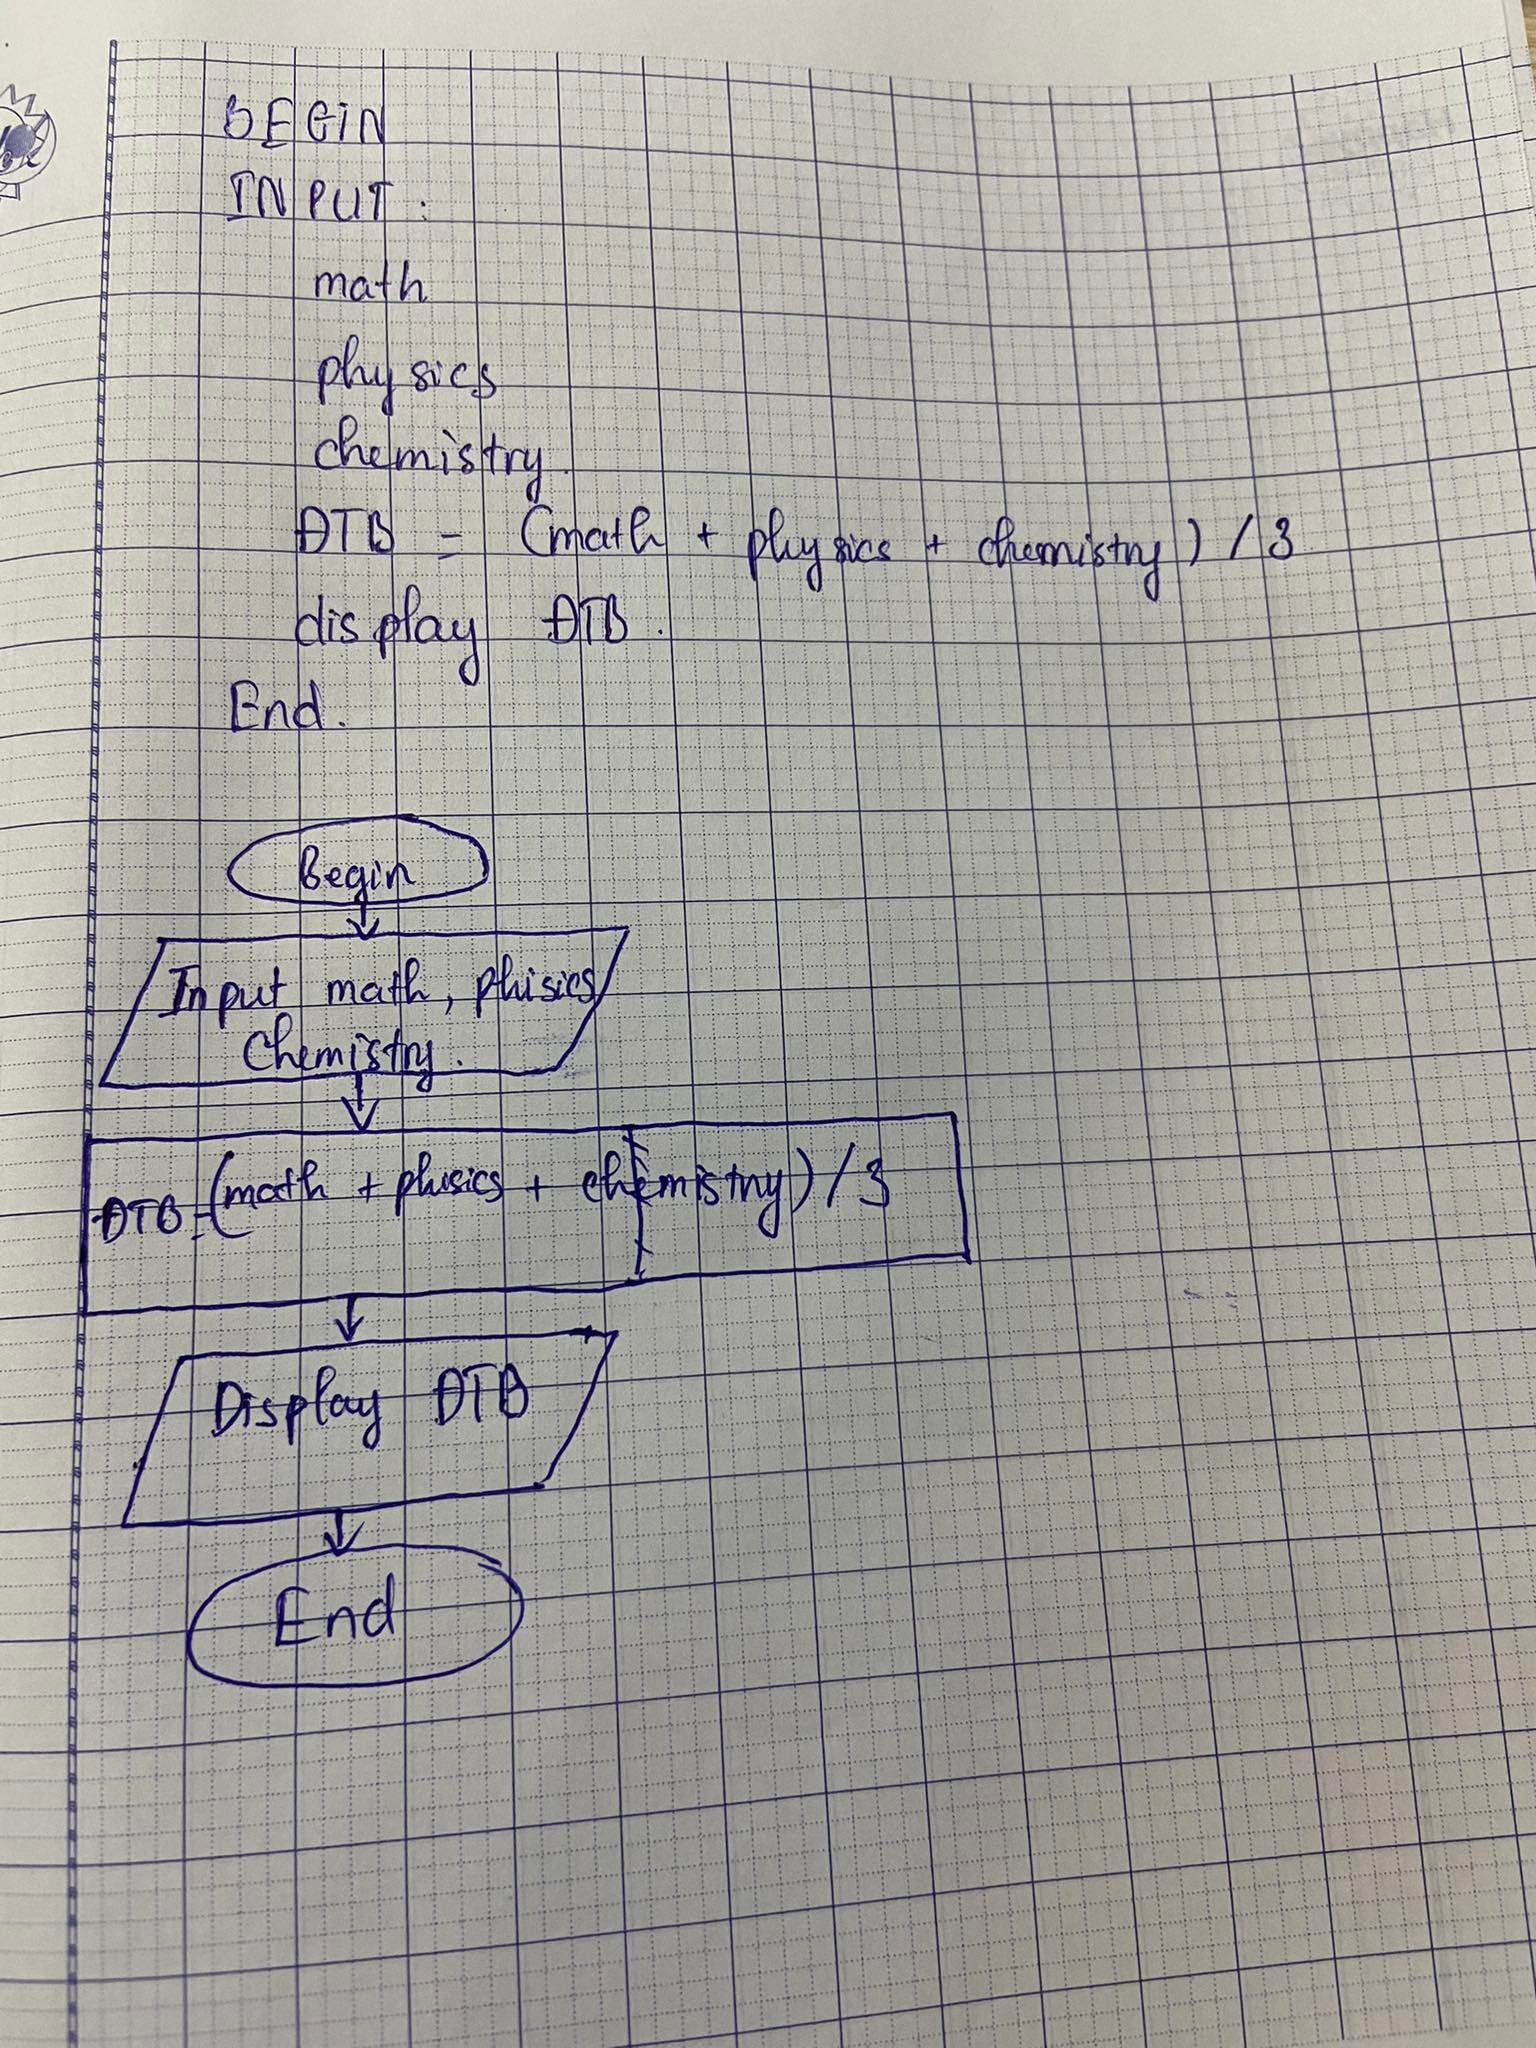 BEGIN
INPUT:
math
physics
chemistry.
ĐTB = (math + physics + chemistry) / 3
display ĐTB.
End.
Begin
Input math, phisics
Chemistry.
ĐTB = (math + phisics + chemistry) / 3
Display ĐTB
End